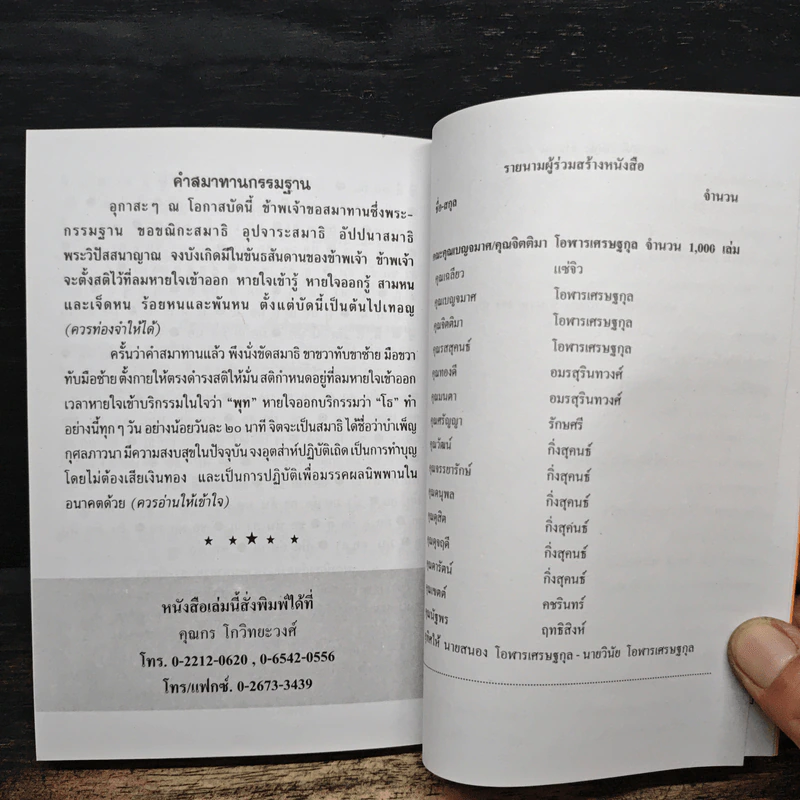 คำสมาทานกรรมฐาน
อุกาสะๆ ณ โอกาสบัดนี้ ข้าพเจ้าขอสมาทานซึ่งพระ-
กรรมฐาน ขอขณิกะสมาธิ อุปจาระสมาธิ อัปปนาสมาธิ
พระวิปัสสนาญาณ จงบังเกิดมีในขันธสันดานของข้าพเจ้า ข้าพเจ้า
จะตั้งสติไว้ที่ลมหายใจเข้าออก หายใจเข้ารู้ หายใจออกรู้ สามหน
และเจ็ดหน ร้อยหนและพันหน ตั้งแต่บัดนี้เป็นต้นไปเทอญ
(ควรท่องจำให้ได้)
ครั้นว่าคำสมาทานแล้ว พึงนั่งขัดสมาธิ ขาขวาทับขาซ้าย มือขวา
ทับมือซ้าย ตั้งกายให้ตรงดำรงสติให้มั่น สติกำหนดอยู่ที่ลมหายใจเข้าออก
เวลาหายใจเข้าบริกรรมในใจว่า “พุท” หายใจออกบริกรรมว่า “โธ” ทำ
อย่างนี้ทุกๆ วัน อย่างน้อยวันละ ๒๐ นาที จิตจะเป็นสมาธิ ได้ชื่อว่าบำเพ็ญ
กุศลภาวนา มีความสงบสุขในปัจจุบัน จงอุตส่าห์ปฏิบัติเถิด เป็นการทำบุญ
โดยไม่ต้องเสียเงินทอง และเป็นการปฏิบัติเพื่อมรรคผลนิพพานใน
อนาคตด้วย (ควรอ่านให้เข้าใจ)
หนังสือเล่มนี้สั่งพิมพ์ได้ที่
คุณกร โกวิทยะวงศ์
โทร. 0-2212-0620 , 0-6542-0556
โทร/แฟกซ์. 0-2673-3439
รายนามผู้ร่วมสร้างหนังสือ
ชื่อ-สกุล จำนวน
คณะคุณเบญจมาศ/คุณจิตติมา โอฬารเศรษฐกุล จำนวน 1,000 เล่ม
คุณเฉลียว แซ่จิว
คุณเบญจมาศ โอฬารเศรษฐกุล
คุณจิตติมา โอฬารเศรษฐกุล
คุณรสสุคนธ์ โอฬารเศรษฐกุล
คุณทองดี อมรสุรินทวงศ์
คุณมนตา อมรสุรินทวงศ์
คุณศรัญญา รักษศรี
คุณวัฒน์ กิ่งสุคนธ์
คุณจรรยารักษ์ กิ่งสุคนธ์
คุณดนุพล กิ่งสุคนธ์
คุณดุสิต กิ่งสุคนธ์
คุณดุจฤดี กิ่งสุคนธ์
คุณดารัตน์ กิ่งสุคนธ์
คุณเขตต์ คชรินทร์
คุณนัฐพร ฤทธิสิงห์
นายสนอง โอฬารเศรษฐกุล - นายวินัย โอฬารเศรษฐกุล